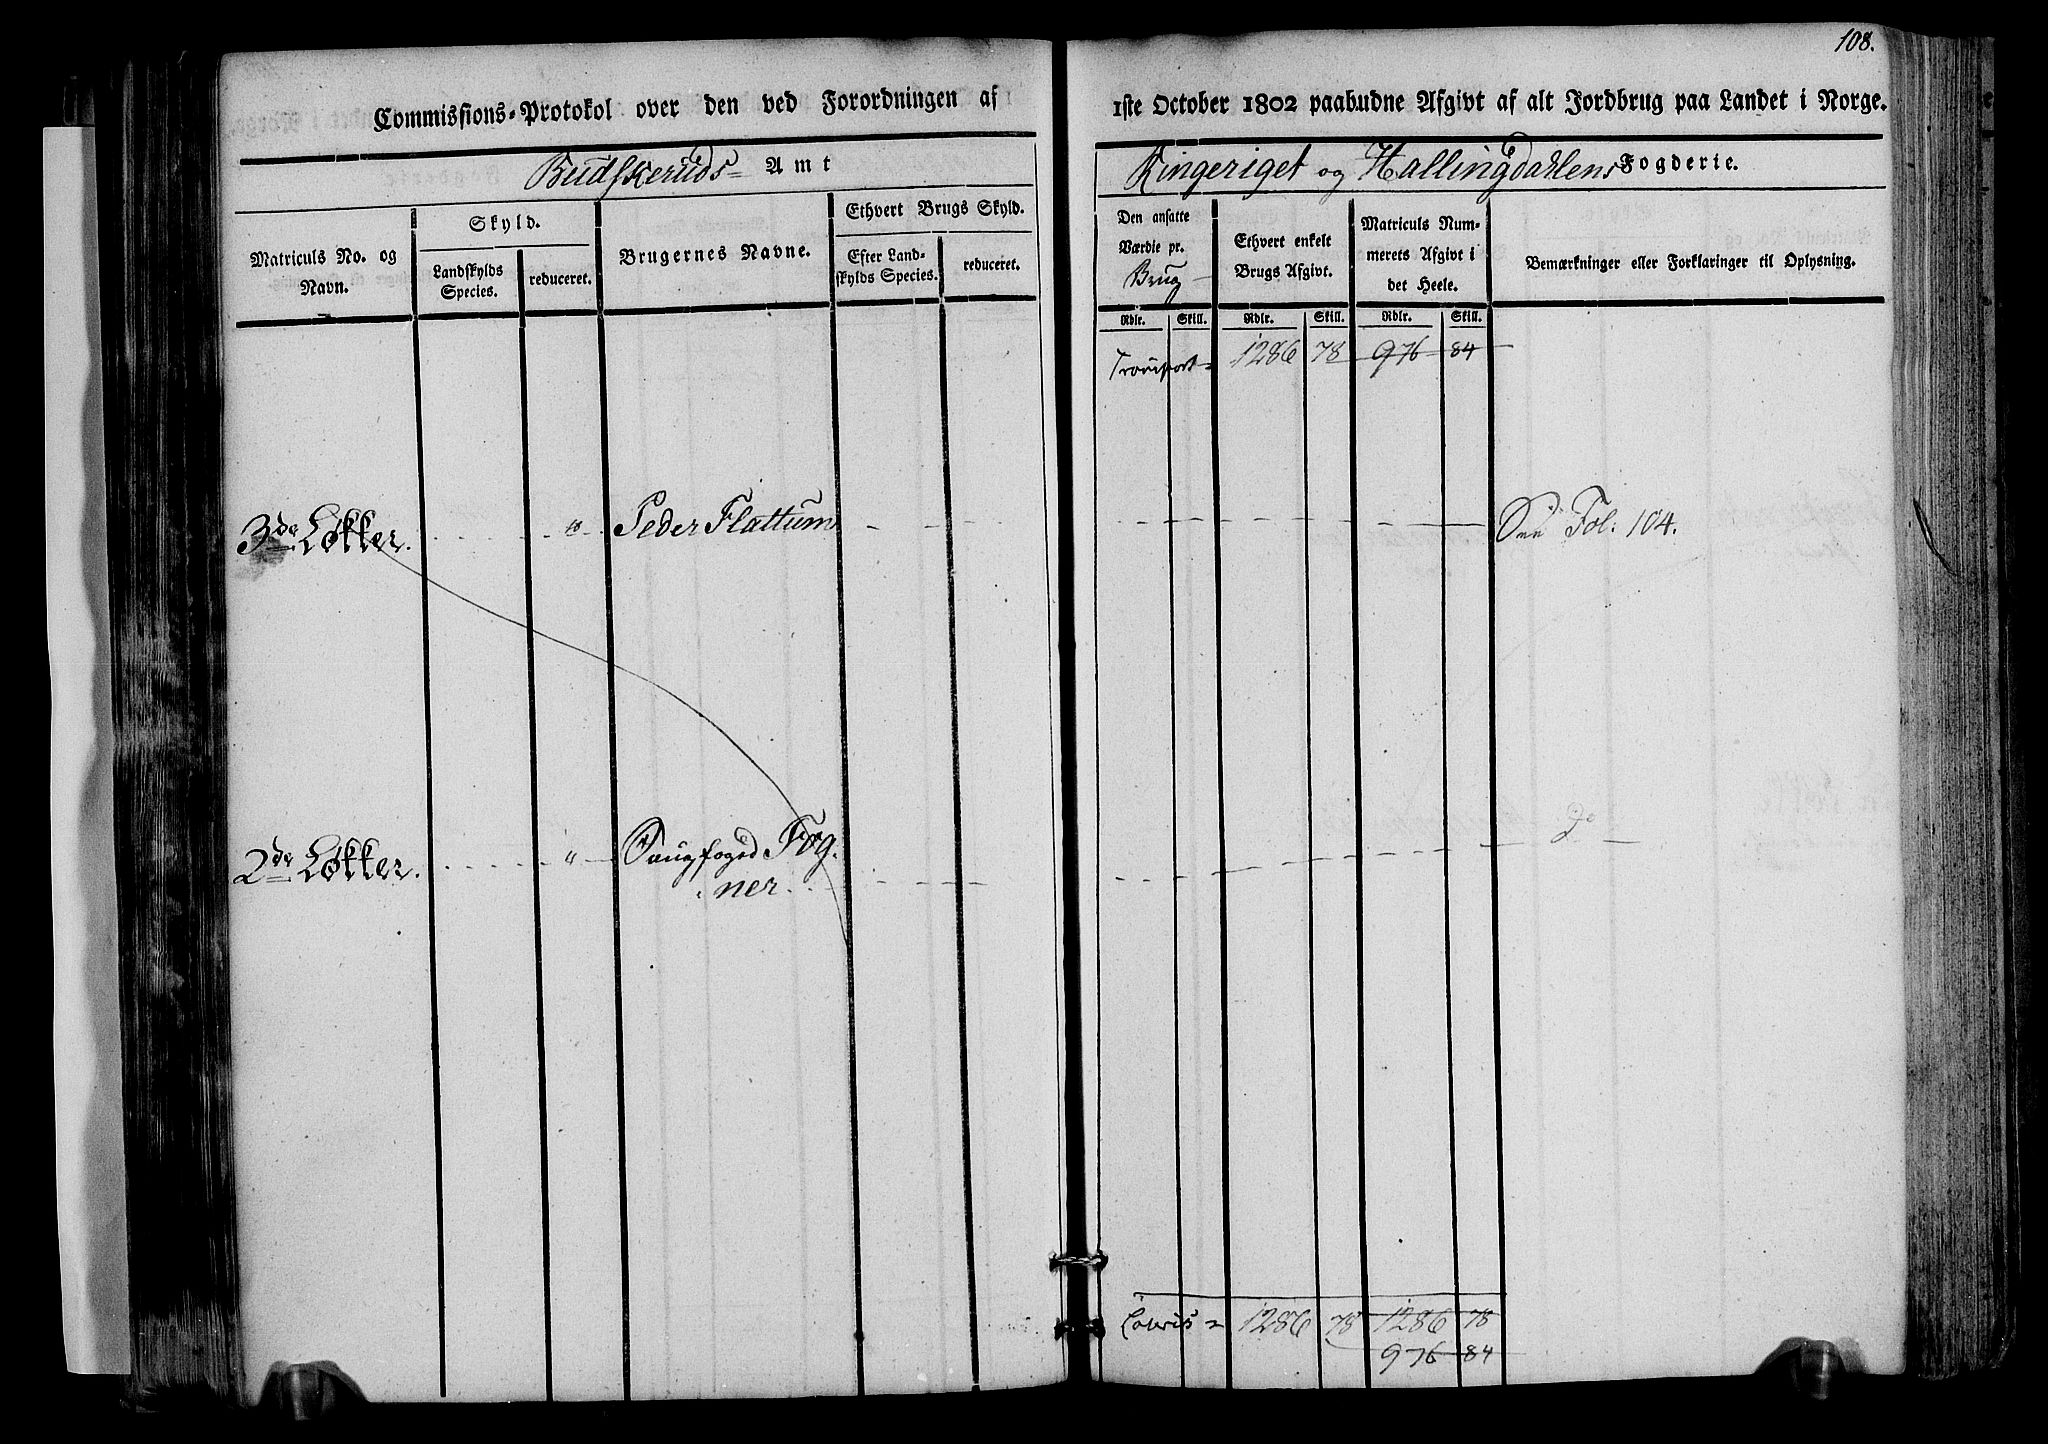 108.
Commissions-Protokol over den ved Forordningen af 1ste October 1802 paabudne Afgivt af alt Jordbrug paa Landet i Norge.
Budskeruds Amt
Ringeriget og Hallingdahlens Fogderie.
Matriculs No. og Navn.
Skyld.
Landskylds Species.
reduceret.
Brugernes Navne.
Ethvert Brugs Skyld.
Efter Landskylds Species.
reduceret.
Den ansatte Værdie pr. Brug
Ethvert enkelt Brugs Afgivt.
Matriculs Nummerets Afgivt i det Heele.
Bemærkninger eller Forklaringer til Oplysning.
Rdlr. Skill. Rdlr. Skill. Rdlr. Skill.
Transport 1286 78 976 84
3de Løkker. " Peder Flattum See Fol: 104.
2de Løkker. " Fog-
ner. do
Lateris 1286 78 1286 78
976 84